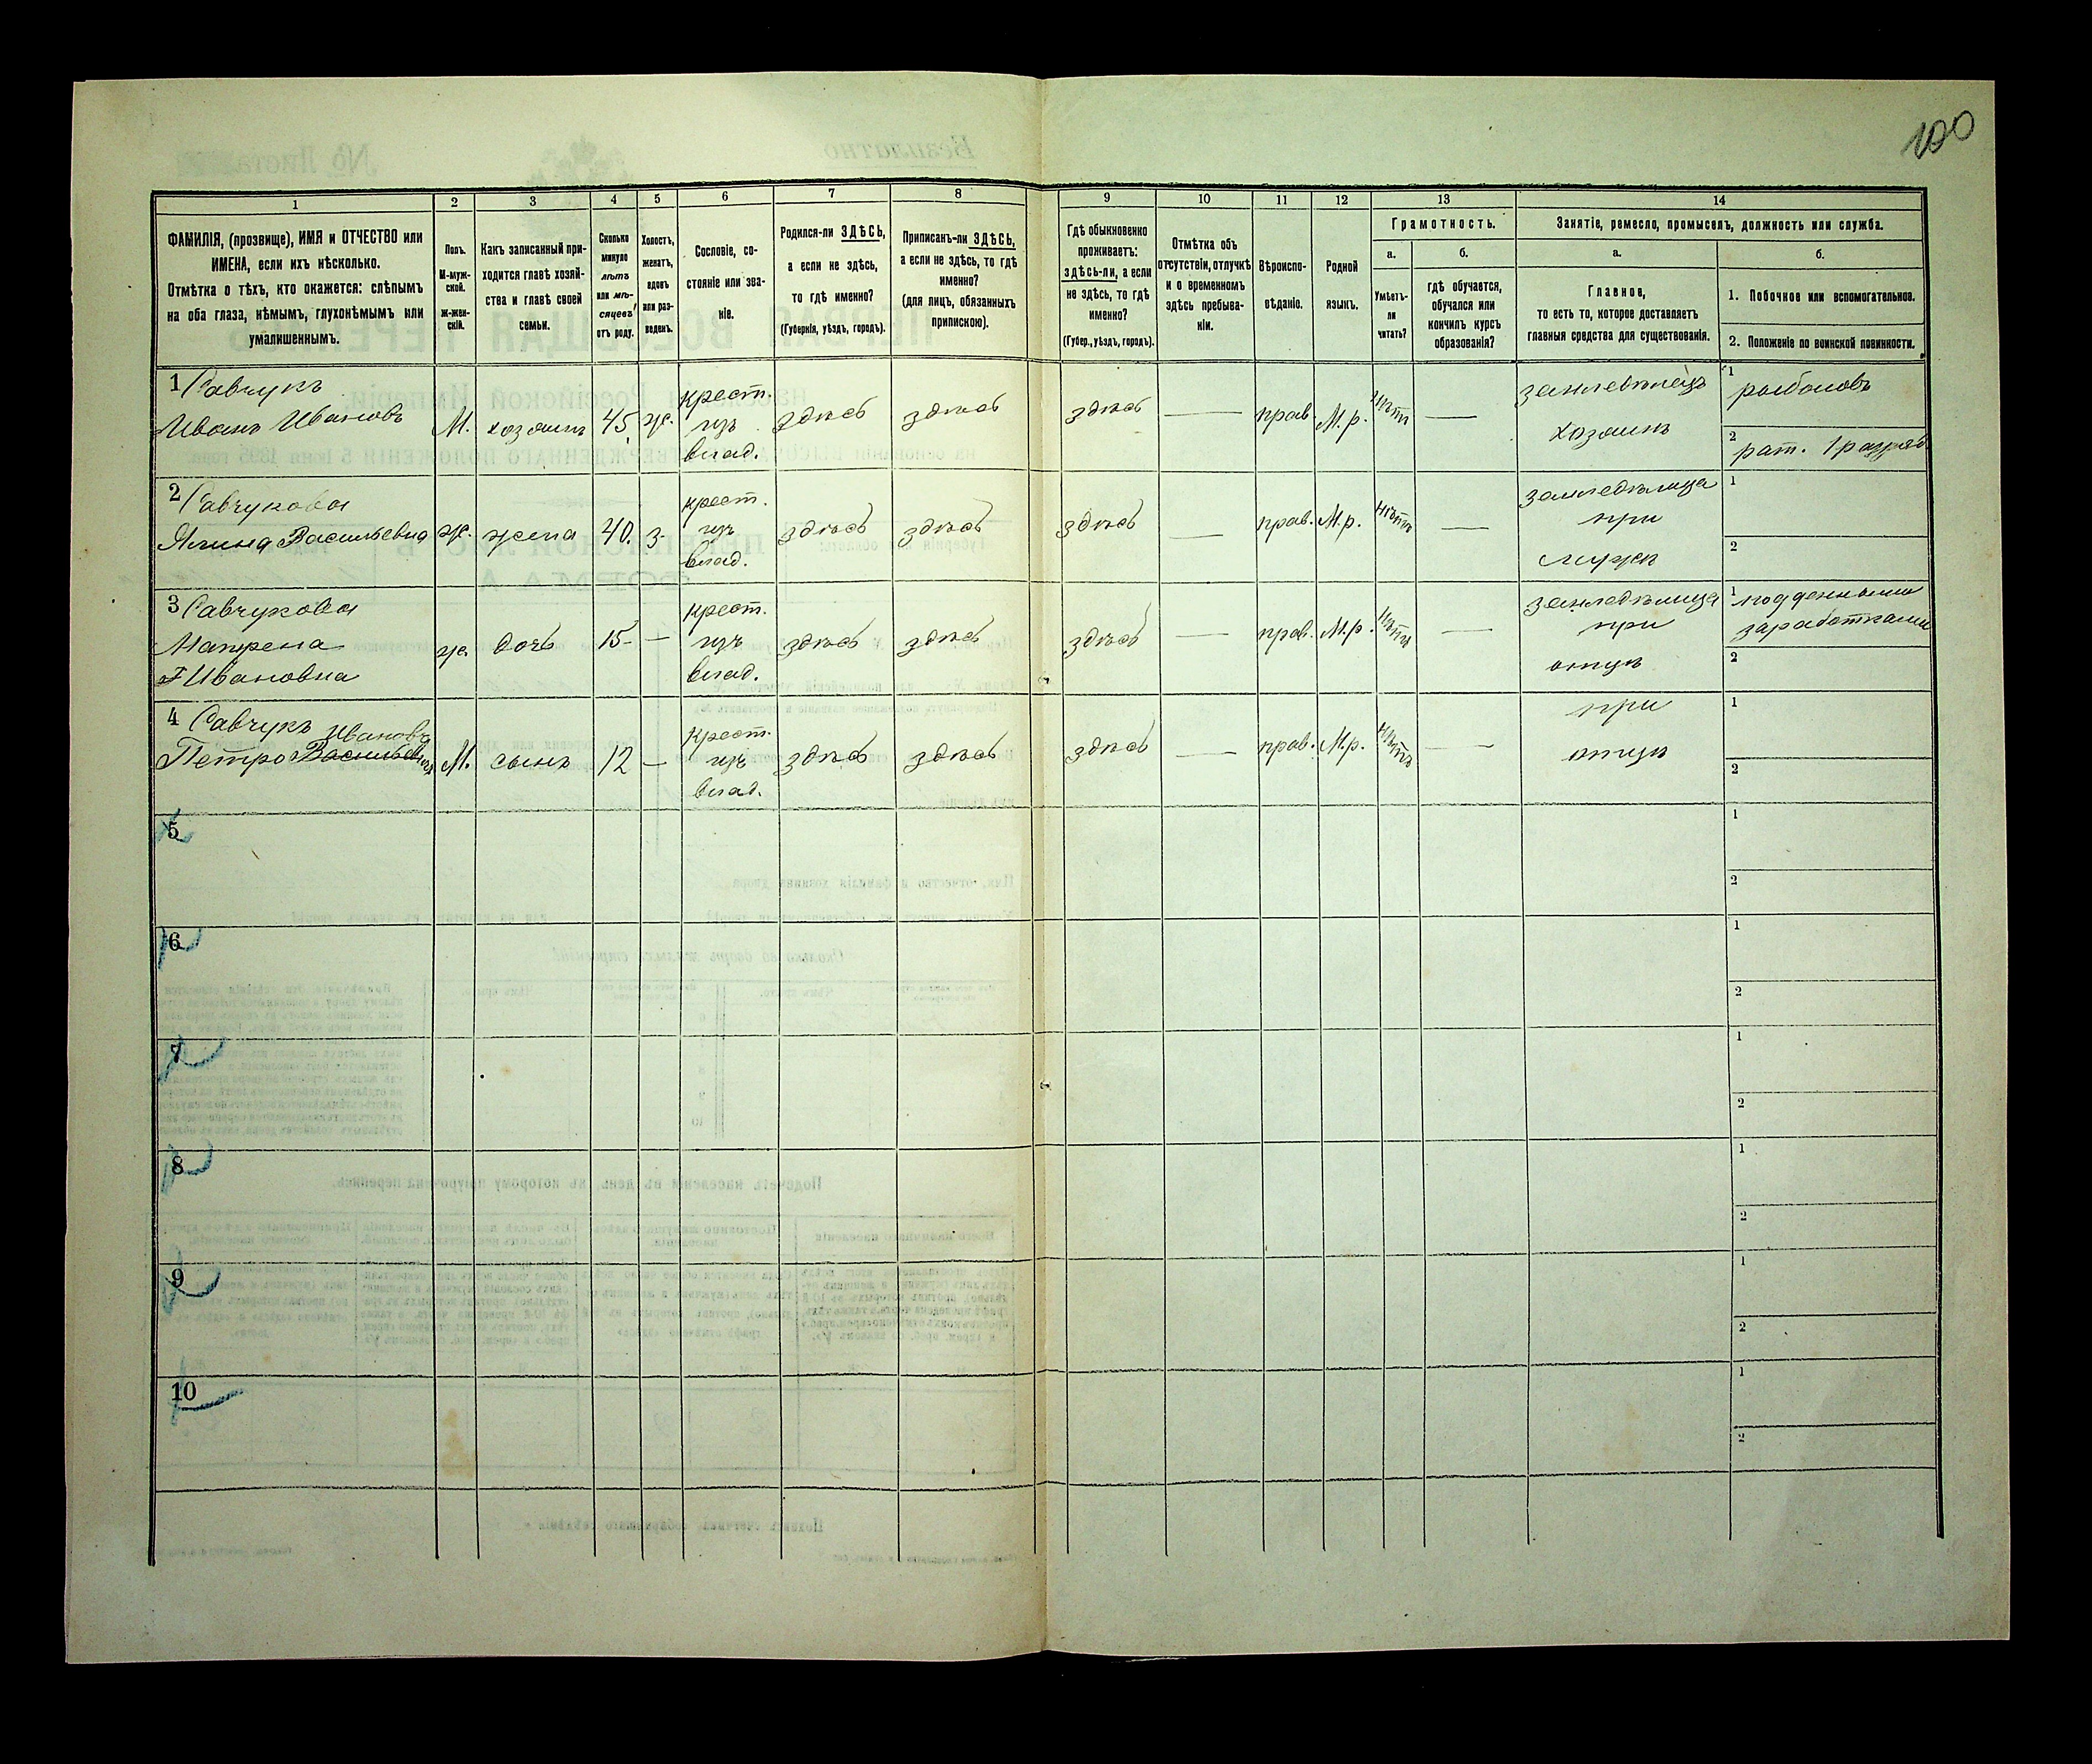 100
1 2 3 4 5 6 7 8 9 10 11 12 13 14
ФАМИЛІЯ, (прозвище), ИМЯ и ОТЧЕСТВО или
ИМЕНА, если ихъ нѣсколько.
Отмѣтка о тѣхъ, кто окажется: слѣпымъ
на оба глаза, нѣмымъ, глухонѣмымъ или
умалишеннымъ.
Полъ.
М-муж-
ской.
ж-жен-
скій.
Какъ записанный при-
ходится главѣ хозяй-
ства и главѣ своей
семьи.
Сколько
минуло
лѣтъ
или мѣ-
сяцевъ
отъ роду.
Холостъ,
женатъ,
вдовъ
или раз-
веденъ.
Сословіе, со-
стояніе или зва-
ніе.
Родился-ли ЗДѢСЬ,
а если не здѣсь,
то гдѣ именно?
(Губернія, уѣздъ, городъ).
Приписанъ-ли ЗДѢСЬ,
а если не здѣсь, то гдѣ
именно?
(для лицъ, обязанныхъ
припискою).
Гдѣ обыкновенно
проживаетъ:
здѣсь-ли, а если
не здѣсь, то гдѣ
именно?
(Губер., уѣздъ, городъ).
Отмѣтка объ
отсутствіи, отлучкѣ
и о временномъ
здѣсь пребыва-
ніи.
Вѣроиспо-
вѣданіе.
Родной
языкъ.
Грамотность.
а.
Умѣетъ-
ли
читать?
б.
гдѣ обучается,
обучался или
кончилъ курсъ
образованія?
Занятіе, ремесло, промыселъ, должность или служба.
а.
Главное,
то есть то, которое доставляетъ
главныя средства для существованія.
б.
1. Побочное или вспомогательное.
2. Положеніе по воинской повинности.
1 Савчукъ
Иванъ Ивановъ
М.
хозяинъ
45
ж.
крест.
изъ
влад.
здѣсь
здѣсь
здѣсь
—
прав.
М.р.
нѣтъ
—
землевладѣлецъ
хозяинъ
1 рыболовъ
2 рат. 1 разряд
2 Савчукова
Васильевна
ж.
жена
40.
з.
крест.
изъ
влад.
здѣсь
здѣсь
здѣсь
—
прав.
М.р.
нѣтъ
—
земледѣлица
при
мужѣ
1
2
3 Савчукова
Матрена
Ивановна
ж.
дочь
15
—
крест.
изъ
влад.
здѣсь
здѣсь
здѣсь
—
прав.
М.р.
нѣтъ
—
земледѣлица
при
отцѣ
1 подденными
заработками
2
4 Савчукъ Ивановъ
Петро
М.
сынъ
12
—
крест.
изъ
влад.
здѣсь
здѣсь
здѣсь
—
прав.
М.р.
нѣтъ
—
при
отцѣ
1
2
5
1
2
6
1
2
7
1
2
8
1
2
9
1
2
10
1
2